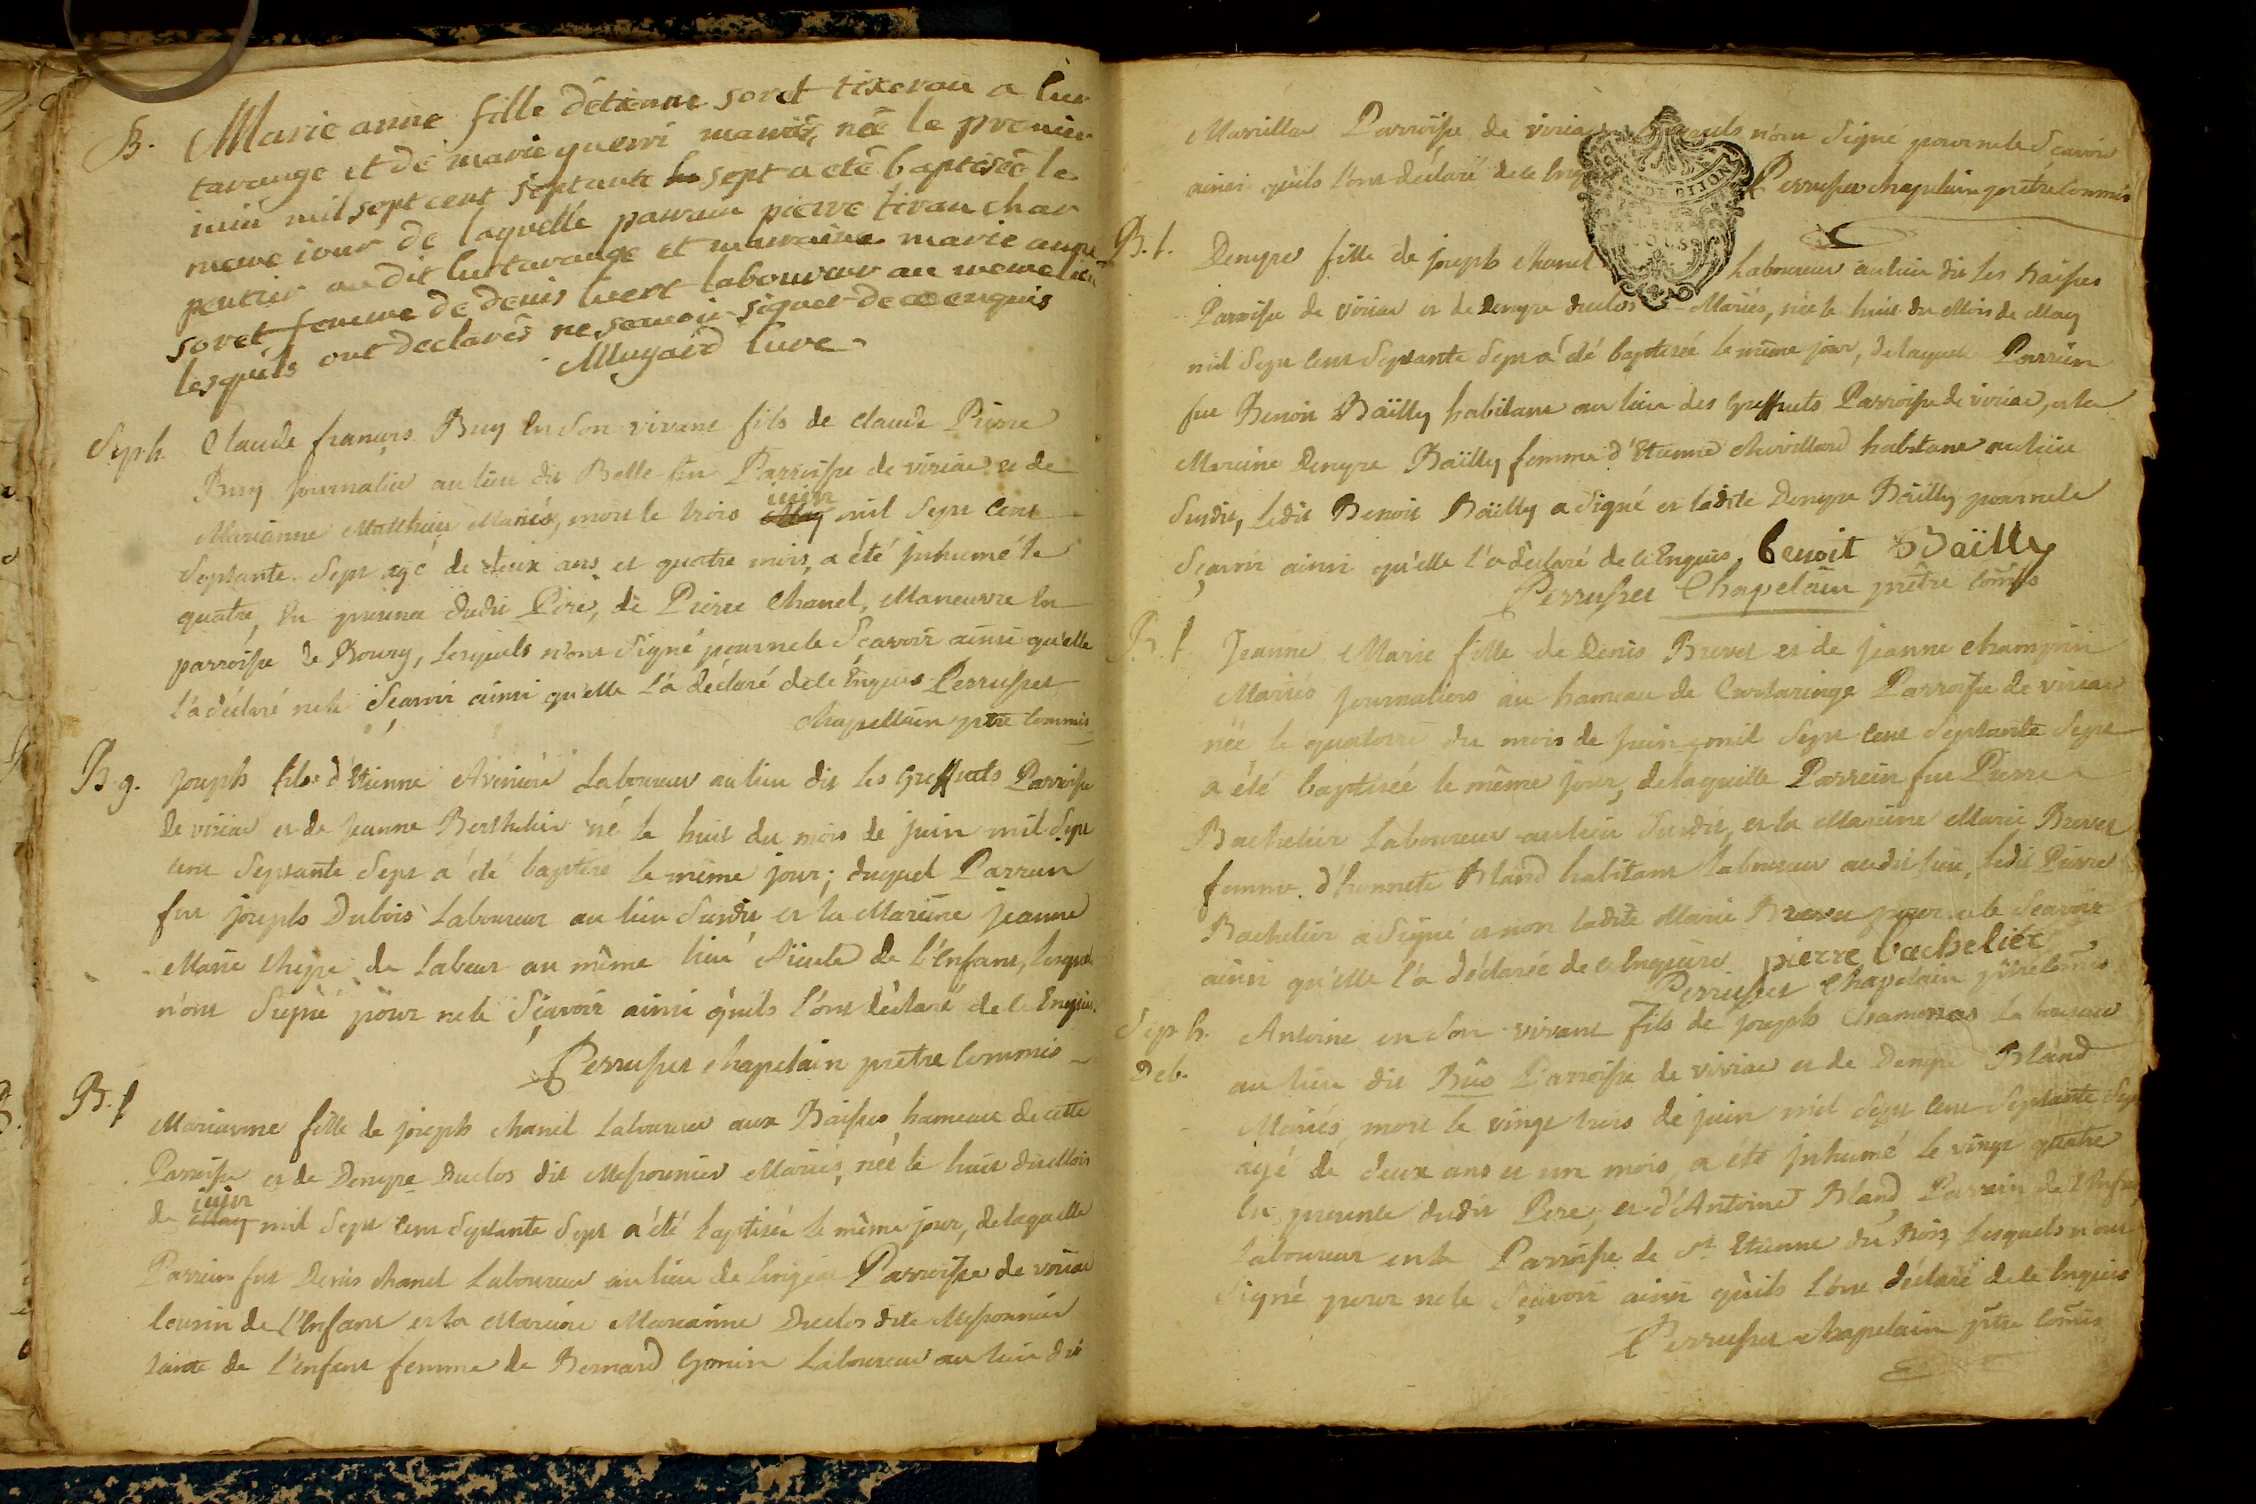 B. Marie anne fille d'étienne soret tixeran a cur
tarange et de marie guerri mariés, née le premier
iuin mil sept cent septante sept a eté baptisée le
meme iour de laquelle parrain pierre tiran char
pentier au dit curtarange et marraine marie anne
soret femme de denis luert laboureur au meme lieu
lesquels ont declarés ne scavoir signer de ce enquis
Mugaird Cure
Seph. Claude françois Buy En Son vivant fils de Claude Pierre
Buy journalier au lieu dit Belle fin Parroisse de viriac et de
Marianne Matthieu Mariés, mort le trois juin mil Sept Cent
Septante Sept agé de deux ans et quatre mois, a été Inhumé le
quatre, En présence dudit Pere, de Pierre Chanel, Maneuvre En
parroisse de Bourg, Lesquels n'ont Signé pour ne le Scavoir ainsi qu'elle
l'a déclaré ne le Sçavoir ainsi qu'elle l'a déclaré de ce Enquis Perrusset
Chapellain ptre Commis
B. g. Joseph fils d'Etienne Laboureur au lieu dit Les Greffets Parroisse
de viriac et de Jeanne Berthelier né le huit du mois de juin mil Sept
Cent Septante Sept a été baptisé le même jour; duquel Parrein
fut joseph Dubois Laboureur au lieu Susdit et la Mareine jeanne
Marie de Labeur au même lieu de l'Enfant, Lesquels
n'ont Signé pour ne le Sçavoir ainsi qu'ils l'ont déclaré de ce Enquis.
Perrusset Chapelain prêtre Commis
B. f Marianne fille de joseph Chanel Laboureur aux Baisses hameau de cette
Parroisse et de Denyse Duclos dit Messonnier Mariés, née le huit du Mois
de juin mil Sept Cent Septante Sept a été baptisée le même jour, de laquelle
Parrein fut Denis Chanel Laboureur au lieu de Parroisse de viriac
Cousin de l'Enfant et la Mareine Marianne Duclos dite Messonnier
tante de l'Enfant femme de Bernard Gonin Laboureur au lieu dit
Parroisse de viriac Lesquels n'ont Signé pour ne le Scavoir
ainsi qu'ils l'ont déclaré de ce Enquis Perrusset Chapelain prêtre Commis
DE DIJON
B. f. Denyse fille de joseph Chanel Laboureur au lieu dit Les Baisses
Parroisse de viriac et de Denyse duclos Mariés, née le huit du Mois de May
mil Sept Cent Septante Sept a été baptisée le même jour, de laquelle Parrein
fut Benoit Baïlly habitant au lieu des Greffets Parroisse de viriac, et la
Mareine Denyse Baïlly femme d'Etienne Chevillard habitant au lieu
Susdit, Ledit Benoit Baïlly a Signé et ladite Denyse Baïlly pour ne le
Sçavoir ainsi qu'elle l'a déclaré de ce Enquis, benoit Baïlly
Perrusset Chapelain prêtre Comis
B. f. Jeanne Marie fille de Denis Brevet et de jeanne Champin
Mariés Journaliers au hameau de Curtaringe Parroisse de viriac
née le quatorze du mois de juin mil Sept Cent Septante Sept
a été baptisée le même jour, de laquelle Parrein fut Pierre
Bachelier Laboureur au lieu Susdit, et la Mareine Marie Brevet
femme d'honnete Bland habitant laboureur au dit lieu, Ledit Pierre
Bachelier a Signé et non ladite Marie Brevet pour ne le Scavoir
ainsi qu'elle l'a déclarée de ce Enquise pierre bachelier
Perrusset Chapelain ptre Comis
Seph. Antoine en Son vivant fils de joseph Chamonas Laboureur
Deb. au lieu dit Bûs Parroisse de viriac et de Denyse Bland
Mariés, mort le vingt trois de juin mil Sept Cent Septante Sept
agé de deux ans et un mois, a été Inhumé le vingt quatre
En presence dudit Pere, et d'Antoine Bland, Parrain de l'Enfant
Laboureur en la Parroisse de St Etienne du Bois, Lesquels n'ont
Signé pour ne le Sçavoir ainsi qu'ils l'ont déclaré de ce Enquis
Perrusset Chapelain ptre Comis